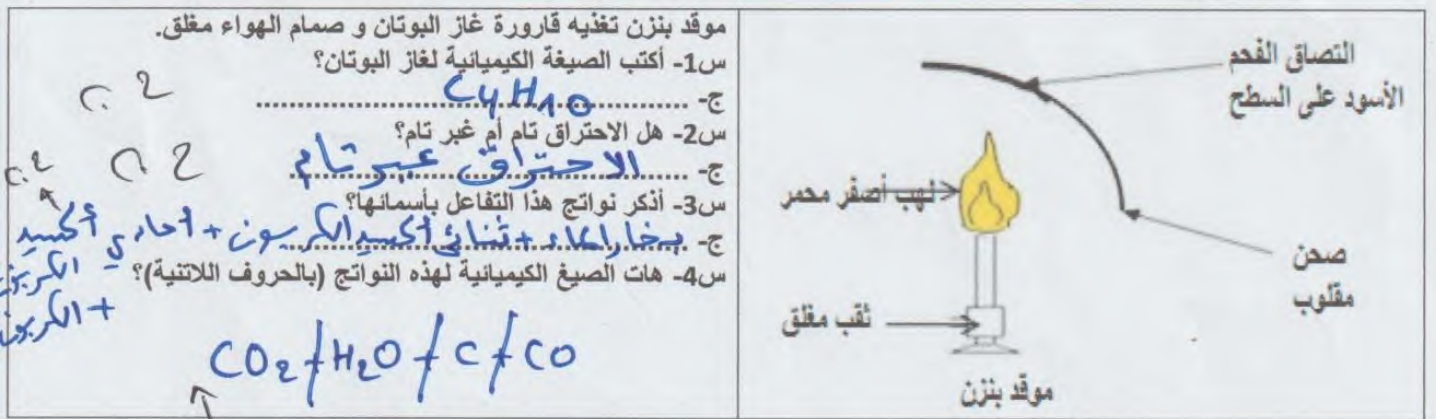 موقد بنزن تغذيه قارورة غاز البوتان و صمام الهواء مغلق.
س1- أكتب الصيغة الكيميائية لغاز البوتان؟
ج- C4H10
س2- هل الاحتراق تام أم غير تام؟
ج- الاحتراق غير تام
س3- أذكر نواتج هذا التفاعل بأسمائها؟
ج- بخار الماء + ثنائي أكسيد الكربون + أحادي أكسيد
الكربون
+ الكربون
س4- هات الصيغ الكيميائية لهذه النواتج (بالحروف اللاتنية)؟
CO2 / H2O / C / CO
التصاق الفحم
الأسود على السطح
لهب أصفر محمر
صحن
مقلوب
ثقب مغلق
موقد بنزن